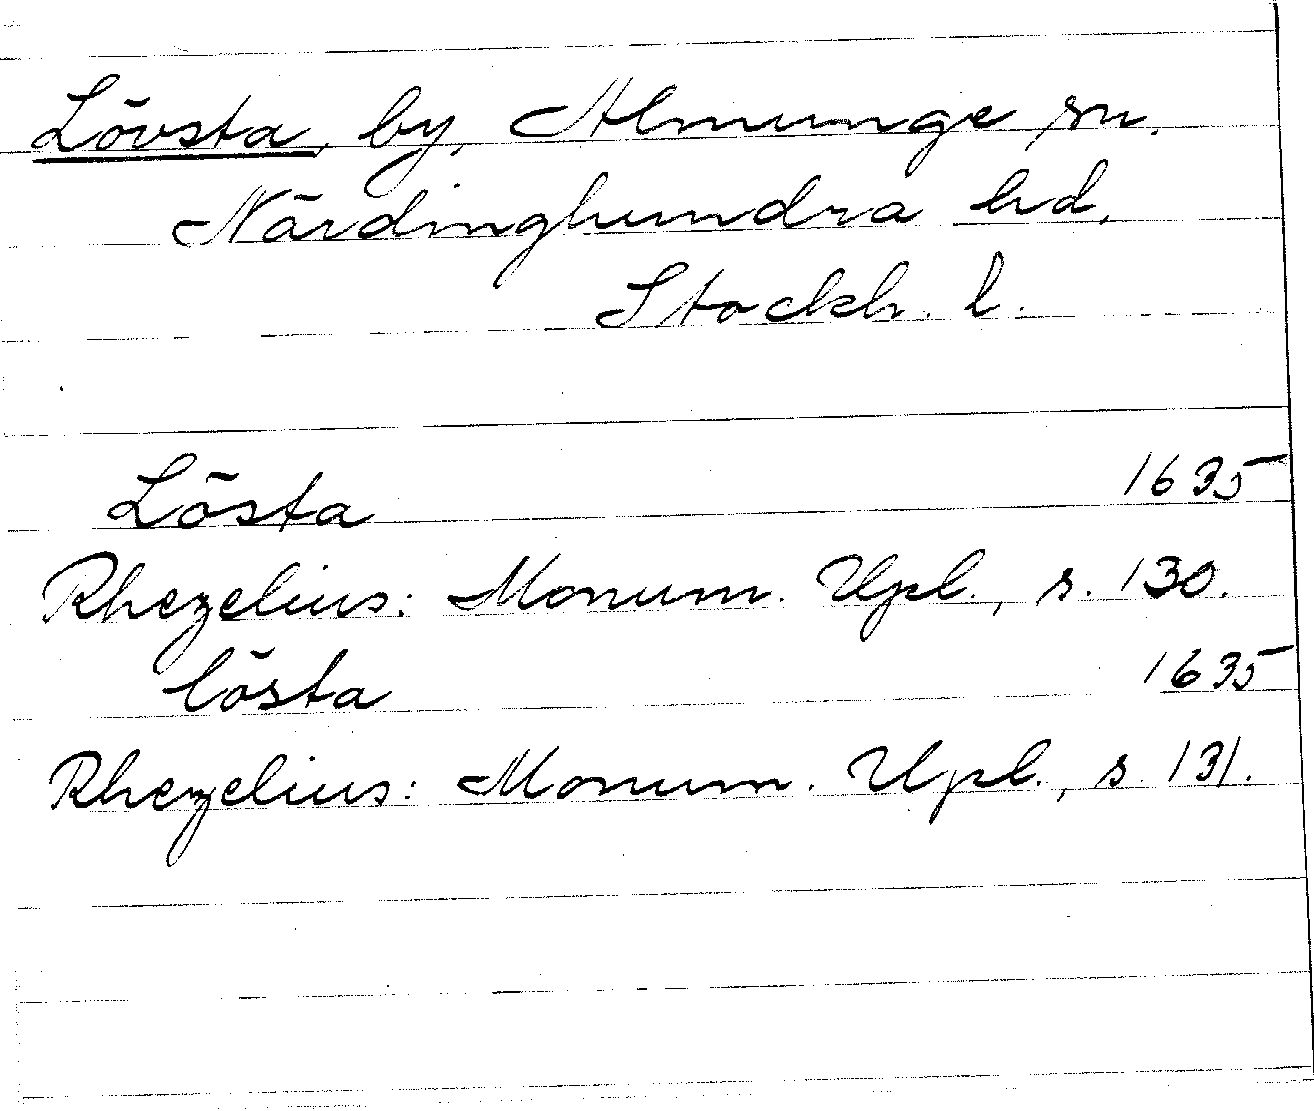 Lövsta, by, Almunge sn.
Närdinghundra hd,
Stockh. l.
Lösta 1635
Rhezelius: Monum. Upl., s. 130.
lösta 1635
Rhezelius: Monum. Upl., s. 131.